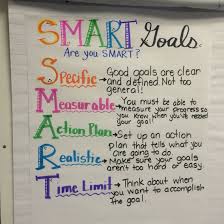 SMART Goals
Are you SMART?
Specific → Good goals are clear
and defined Not too
general!
Measurable → You must be able to
measure your progress so
you know when you've reached
your goal!
Action Plan → Set up an action
plan that tells what you
are going to do
Realistic → Make sure your goals
aren't too hard or easy
Time Limit → Think about when
you want to accomplish
the goal.